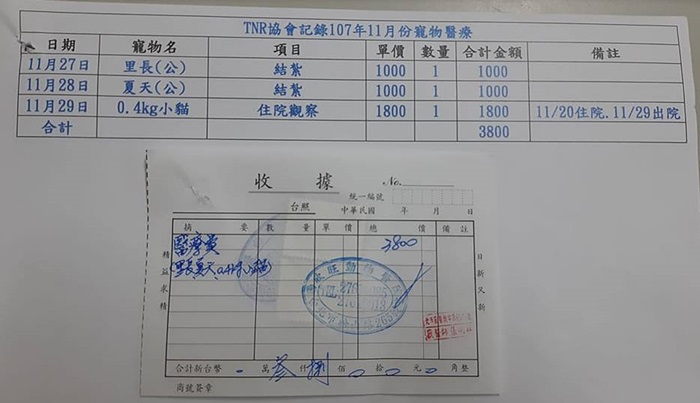 TNR協會記錄107年11月份寵物醫療
日期 寵物名 項目 單價 數量 合計金額 備註
11月27日 里長(公) 結紮 1000 1 1000
11月28日 夏天(公) 結紮 1000 1 1000
11月29日 0.4kg小貓 住院觀察 1800 1 1800 11/20住院.11/29出院
合計 3800
收據 No.
統一編號
台照 中華民國 年 月 日
摘要 數量 單價 總價 備註
醫療費 3800
(里長夏天0.4kg小貓)
精益求精
日新又新
合計新台幣 萬 參仟 捌佰 拾 元 角整
商號簽章